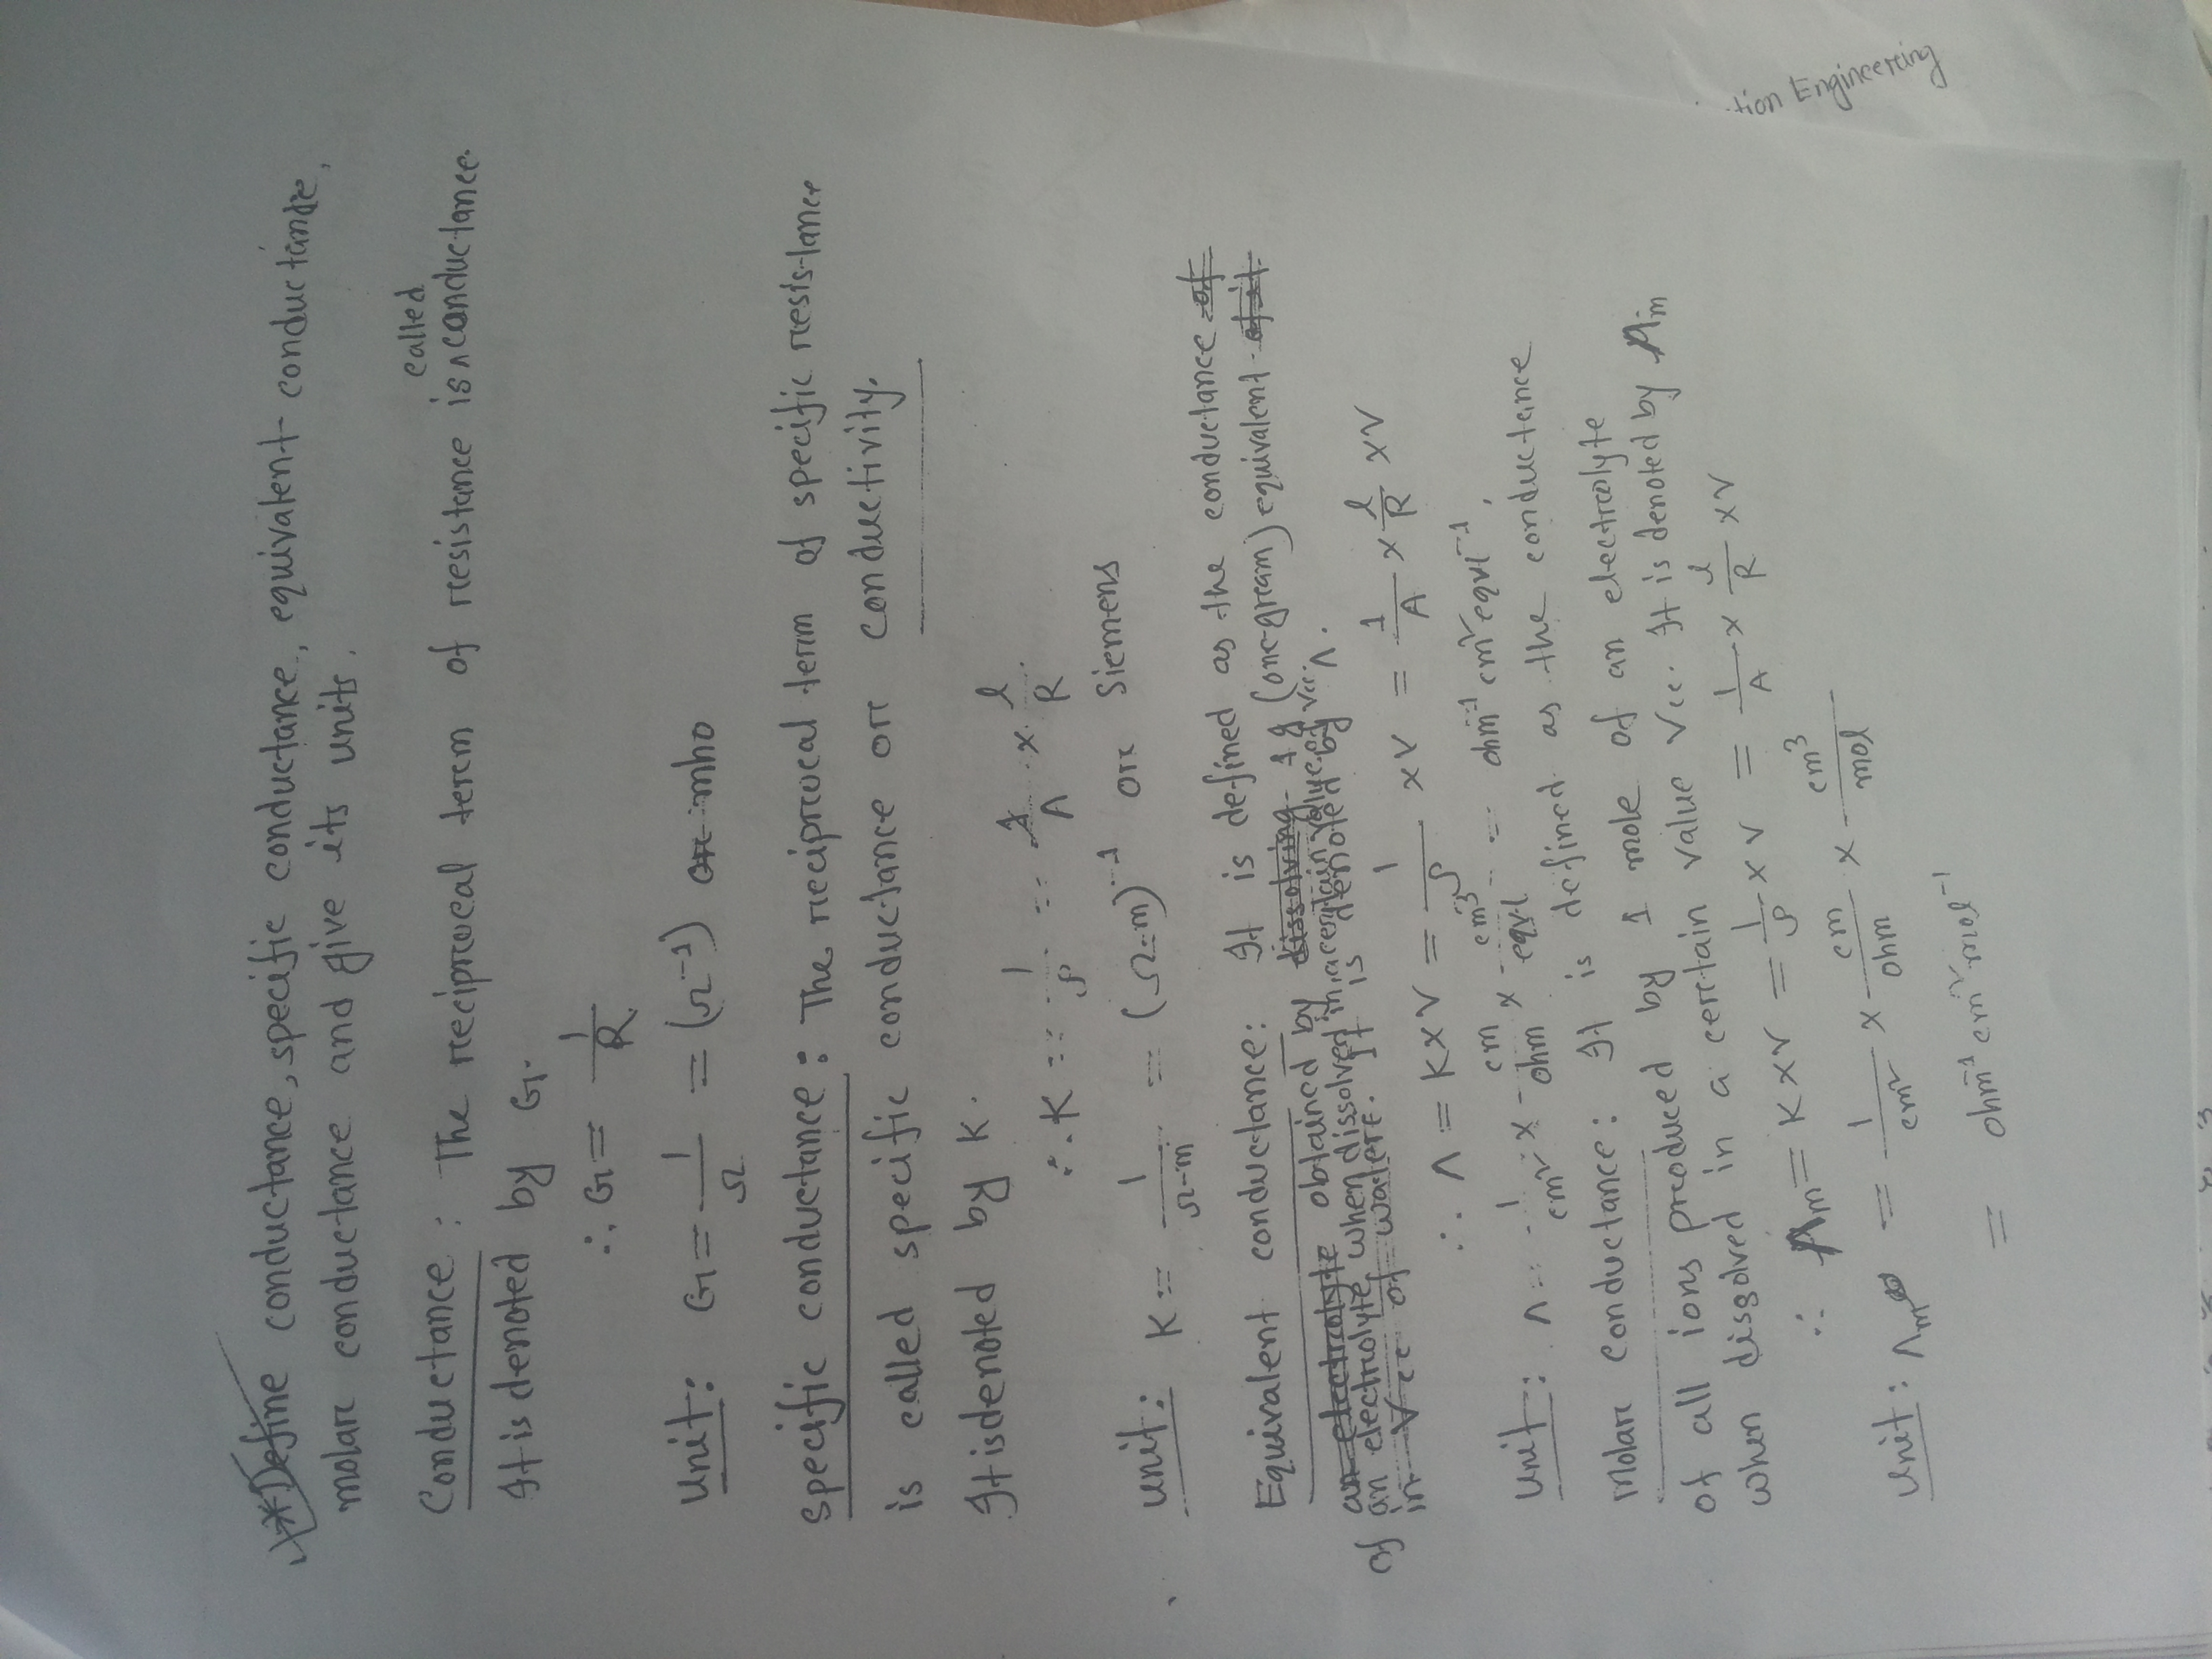 * Define conductance, specific conductance, equivalent conductance,
molar conductance and give its units.
Conductance: The reciprocal term of resistance is called conductance.
It is denoted by G.
∴ G = 1/R
Unit: G = 1/Ω = (Ω⁻¹) or mho
Specific conductance: The reciprocal term of specific resistance
is called specific conductance or conductivity.
It is denoted by K.
∴ K = 1/ρ = 1/A × l/R
Unit: K = 1/Ω-m = (Ω-m)⁻¹ or Siemens
Equivalent conductance: It is defined as the conductance of
obtained by dissolving 1 g (one-gram) equivalent of it
of an electrolyte
an electrolyte when dissolved in a certain value of Vcc.
in Vcc of water. It is denoted by Λ.
∴ Λ = K×V = 1/ρ ×V = 1/A × l/R ×V
Unit: Λ = 1/cm² × cm/ohm × cm³/eqvt = ohm⁻¹ cm² eqvt⁻¹,
Molar conductance: It is defined as the conductance
of all ions produced by 1 mole of an electrolyte
when dissolved in a certain value Vcc. It is denoted by Λm
∴ Λm = K×V = 1/ρ ×V = 1/A × l/R ×V
Unit: Λm = 1/cm² × cm/ohm × cm³/mol
= ohm⁻¹ cm² mol⁻¹
tion Engineering